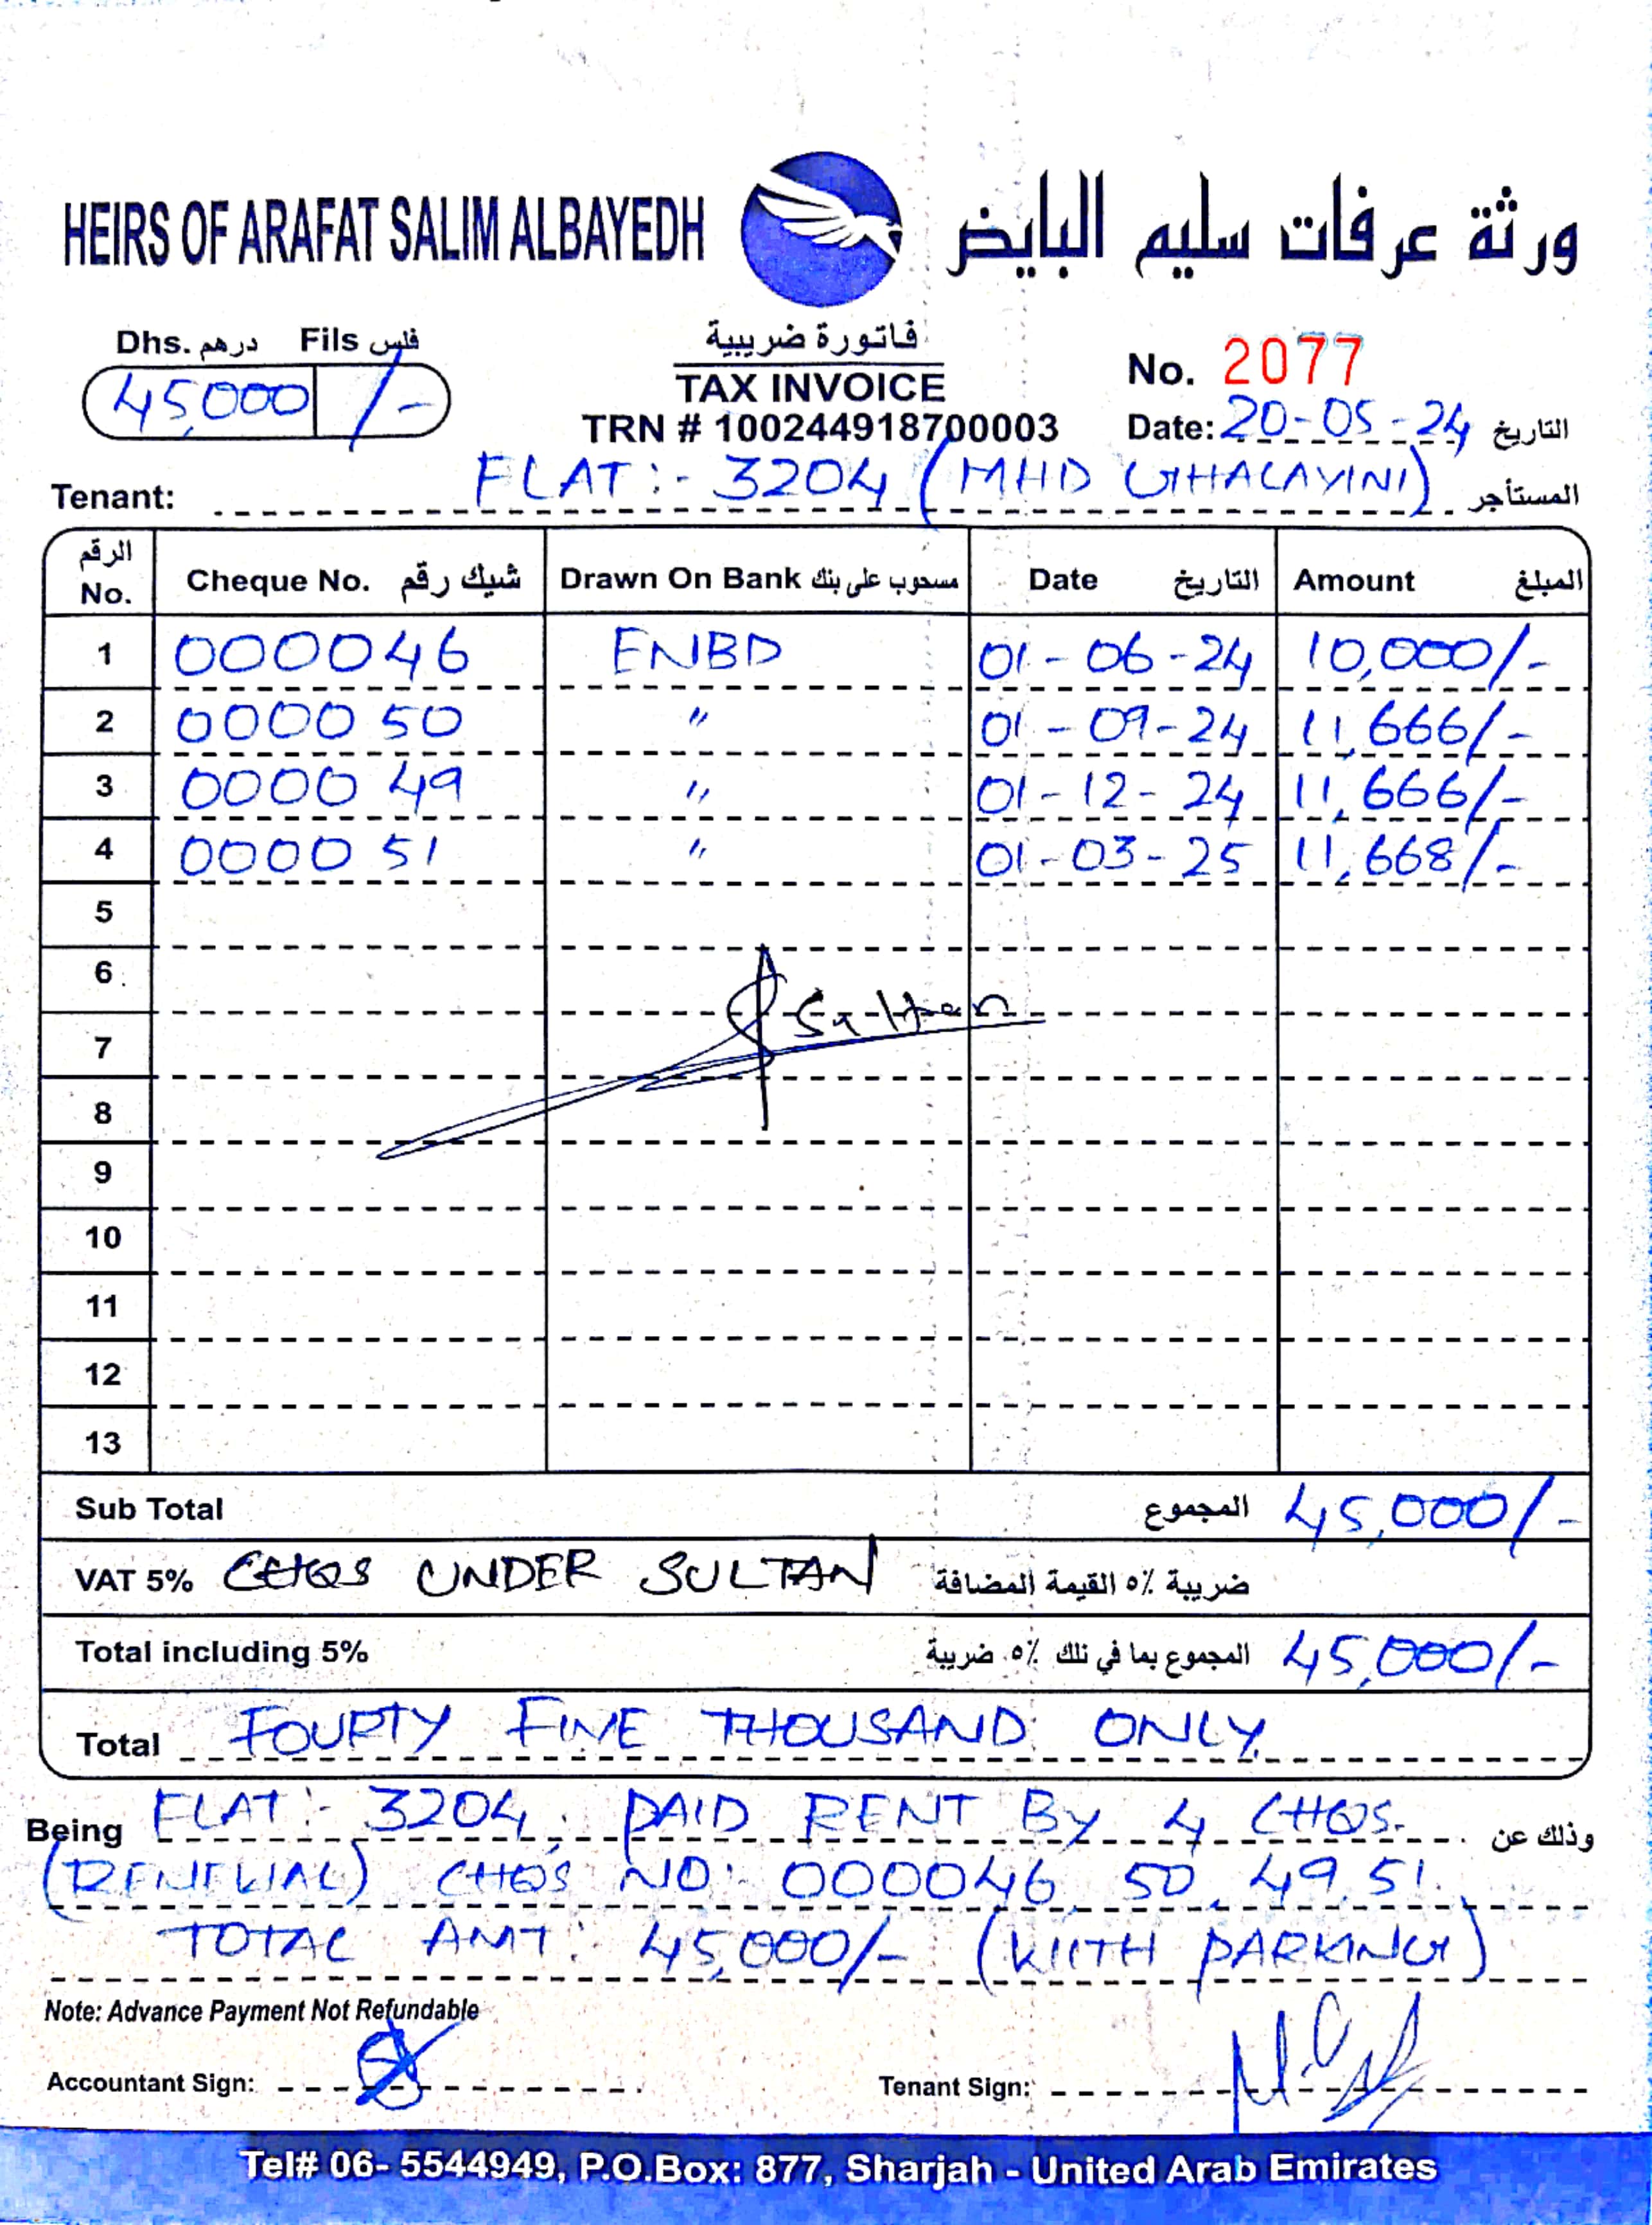 HEIRS OF ARAFAT SALIM ALBAYEDH ورثة عرفات سليم البايض
Dhs. درهم Fils فلس
45,000 /-
فاتورة ضريبية
TAX INVOICE
TRN # 100244918700003
No. 2077
Date: 20-05-24 التاريخ
Tenant: FLAT:- 3204 (MHD GHALAYINI) المستأجر
الرقم No. Cheque No. شيك رقم Drawn On Bank مسحوب على بنك Date التاريخ Amount المبلغ
1 000046 ENBD 01-06-24 10,000/-
2 000050 " 01-09-24 11,666/-
3 000049 " 01-12-24 11,666/-
4 000051 " 01-03-25 11,668/-
5
6
Sultan
7
8
9
10
11
12
13
Sub Total المجموع 45,000/-
VAT 5% CHQS UNDER SULTAN ضريبة ٥٪ القيمة المضافة
Total including 5% المجموع بما في ذلك ٥٪ ضريبة 45,000/-
Total FOURTY FIVE THOUSAND ONLY.
Being FLAT:- 3204, PAID RENT BY 4 CHQS. وذلك عن
(RENEWAL) CHQS NO: 000046, 50, 49, 51.
TOTAL AMT: 45,000/- (WITH PARKING)
Note: Advance Payment Not Refundable
Accountant Sign: Tenant Sign:
Tel# 06- 5544949, P.O.Box: 877, Sharjah - United Arab Emirates